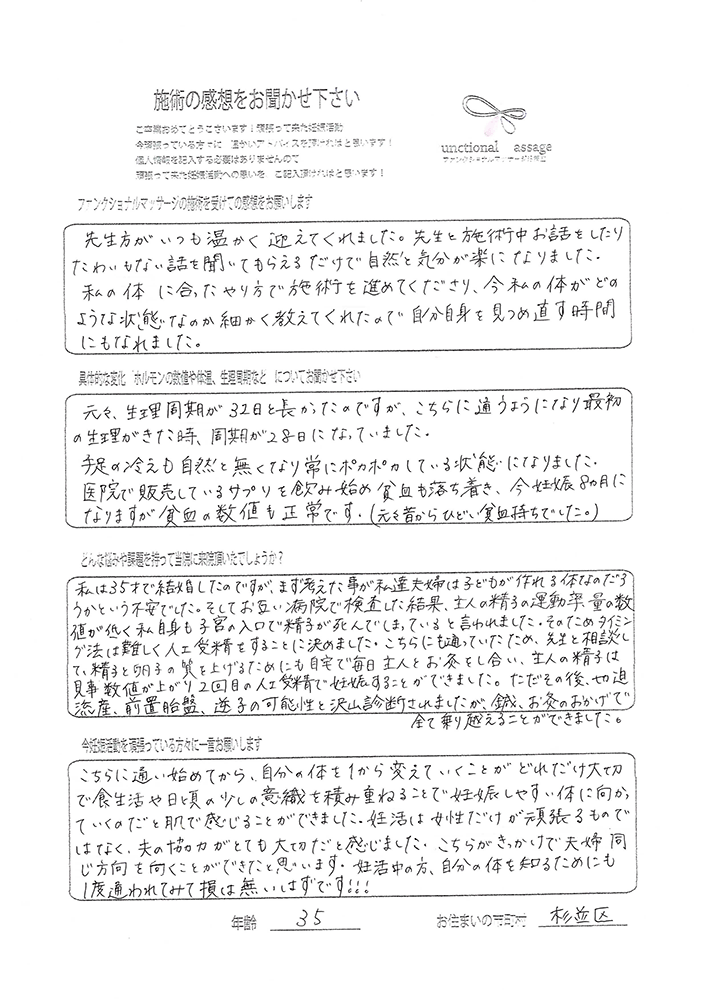 施術の感想をお聞かせ下さい
ご卒業おめでとうございます！頑張って来た妊娠活動
今頑張っている方々に 温かいアドバイスを頂ければと思います！
個人情報を記入する必要はありませんので
頑張って来た妊娠活動への思いを、ご記入頂ければと思います！
unctional assage
ファンクショナルマッサージの施術を受けての感想をお願いします
先生方がいつも温かく迎えてくれました。先生と施術中お話をしたり
たわいもない話を聞いてもらえるだけで自然と気分が楽になりました。
私の体に合ったやり方で施術を進めてくださり、今私の体がどの
ような状態なのか細かく教えてくれたので自分自身を見つめ直す時間
にもなれました。
具体的な変化 ホルモンの数値や体温、生理周期など についてお聞かせ下さい
元々、生理周期が32日と長かったのですが、こちらに通うようになり最初
の生理がきた時、周期が28日になっていました。
手足の冷えも自然と無くなり常にポカポカしている状態になりました。
医院で販売しているサプリを飲み始め貧血も落ち着き、今妊娠8ヵ月に
なりますが貧血の数値も正常です。(元々昔からひどい貧血持ちでした。)
どんな悩みや課題を持って当院に来院頂いたでしょうか？
私は35才で結婚したのですが、まず考えた事が私達夫婦は子どもが作れる体なのだろ
うかという不安でした。そしてお互い病院で検査した結果、主人の精子の運動率、量の数
値が低く私自身も子宮の入口で精子が死んでしまっていると言われました。そのためタイミン
グ法は難しく人工受精をすることに決めました。こちらにも通っていたため、先生と相談し
て、精子と卵子の質を上げるためにも自宅で毎日主人とお灸をし合い、主人の精子は
見事数値が上がり2回目の人工受精で妊娠することができました。ただその後、切迫
流産、前置胎盤、逆子の可能性と沢山診断されましたが、鍼、お灸のおかげで
全て乗り越えることができました。
今妊娠活動を頑張っている方々に一言お願いします
こちらに通い始めてから、自分の体を1から変えていくことがどれだけ大切
で食生活や日頃の少しの意識を積み重ねることで妊娠しやすい体に向かっ
ていくのだと肌で感じることができました。妊活は女性だけが頑張るもので
はなく、夫の協力がとても大切だと感じました。こちらがきっかけで夫婦同
じ方向を向くことができたと思います。妊活中の方、自分の体を知るためにも
1度通われてみて損は無いはずです!!!
年齢 35 お住まいの市町村 杉並区